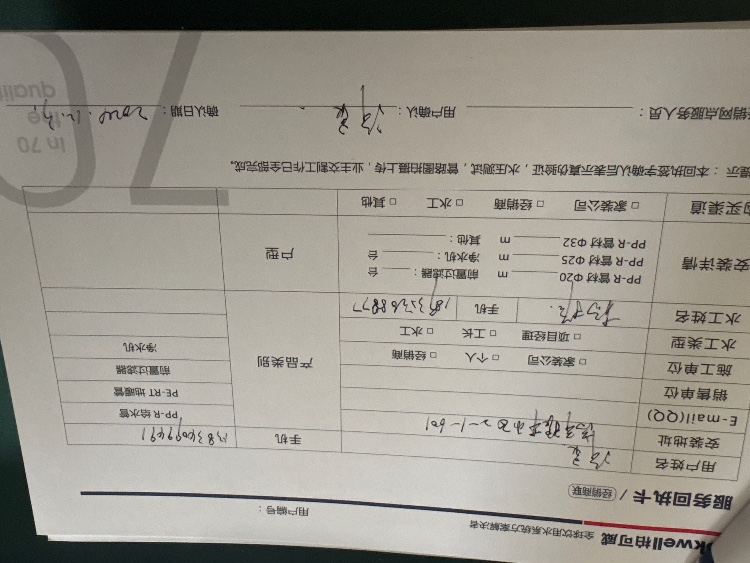 kwell柏可威 全球饮用水系统方案解决者
服务回执卡 / 经销商联 用户编号：
用户姓名 手机 13834099691
安装地址 2-1-601
E-mail(QQ) PP-R 给水管
销售单位 PE-RT 地暖管
施工单位 □ 家装公司 □ 个人 □ 经销商 产品类别 前置过滤器
水工类型 □ 项目经理 □ 工长 □ 水工 净水机
水工姓名 手机
安装详情 PP-R 管材 Φ20 m 前置过滤器： 台 户型
PP-R 管材 Φ25 m 净水机： 台
PP-R 管材 Φ32 m 其他：
购买渠道 □ 家装公司 □ 经销商 □ 水工 □ 其他
提示：本回执签字确认后表示真伪验证，水压测试，管路图拍摄上传，业主交割工作已全部完成。
经销网点服务人员： 用户确认： 确认日期：
70
In 70
the
quali